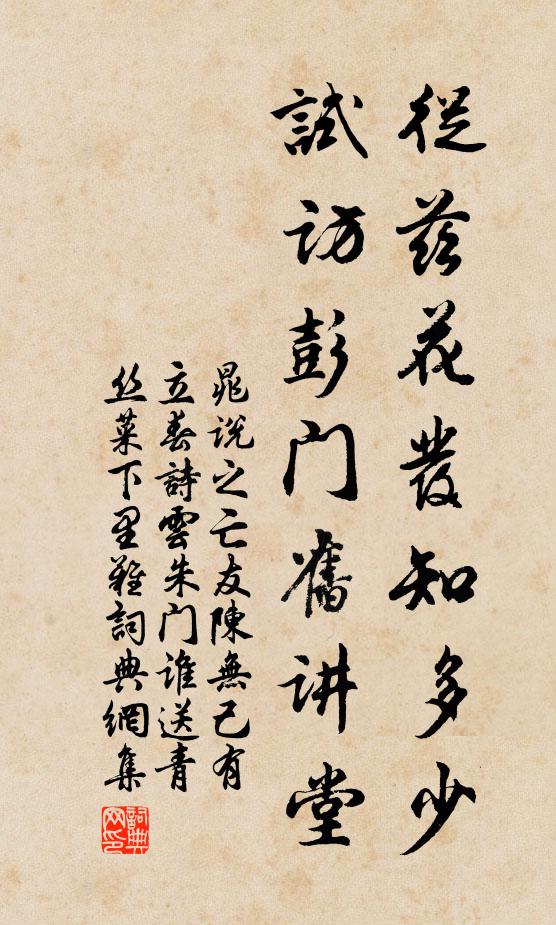 從茲花發知多少
試訪彭门舊讲堂
晁说之亡友陳無己有
立春詩雲朱门誰送青
丝菜下里難詞典網集
詞典
网印